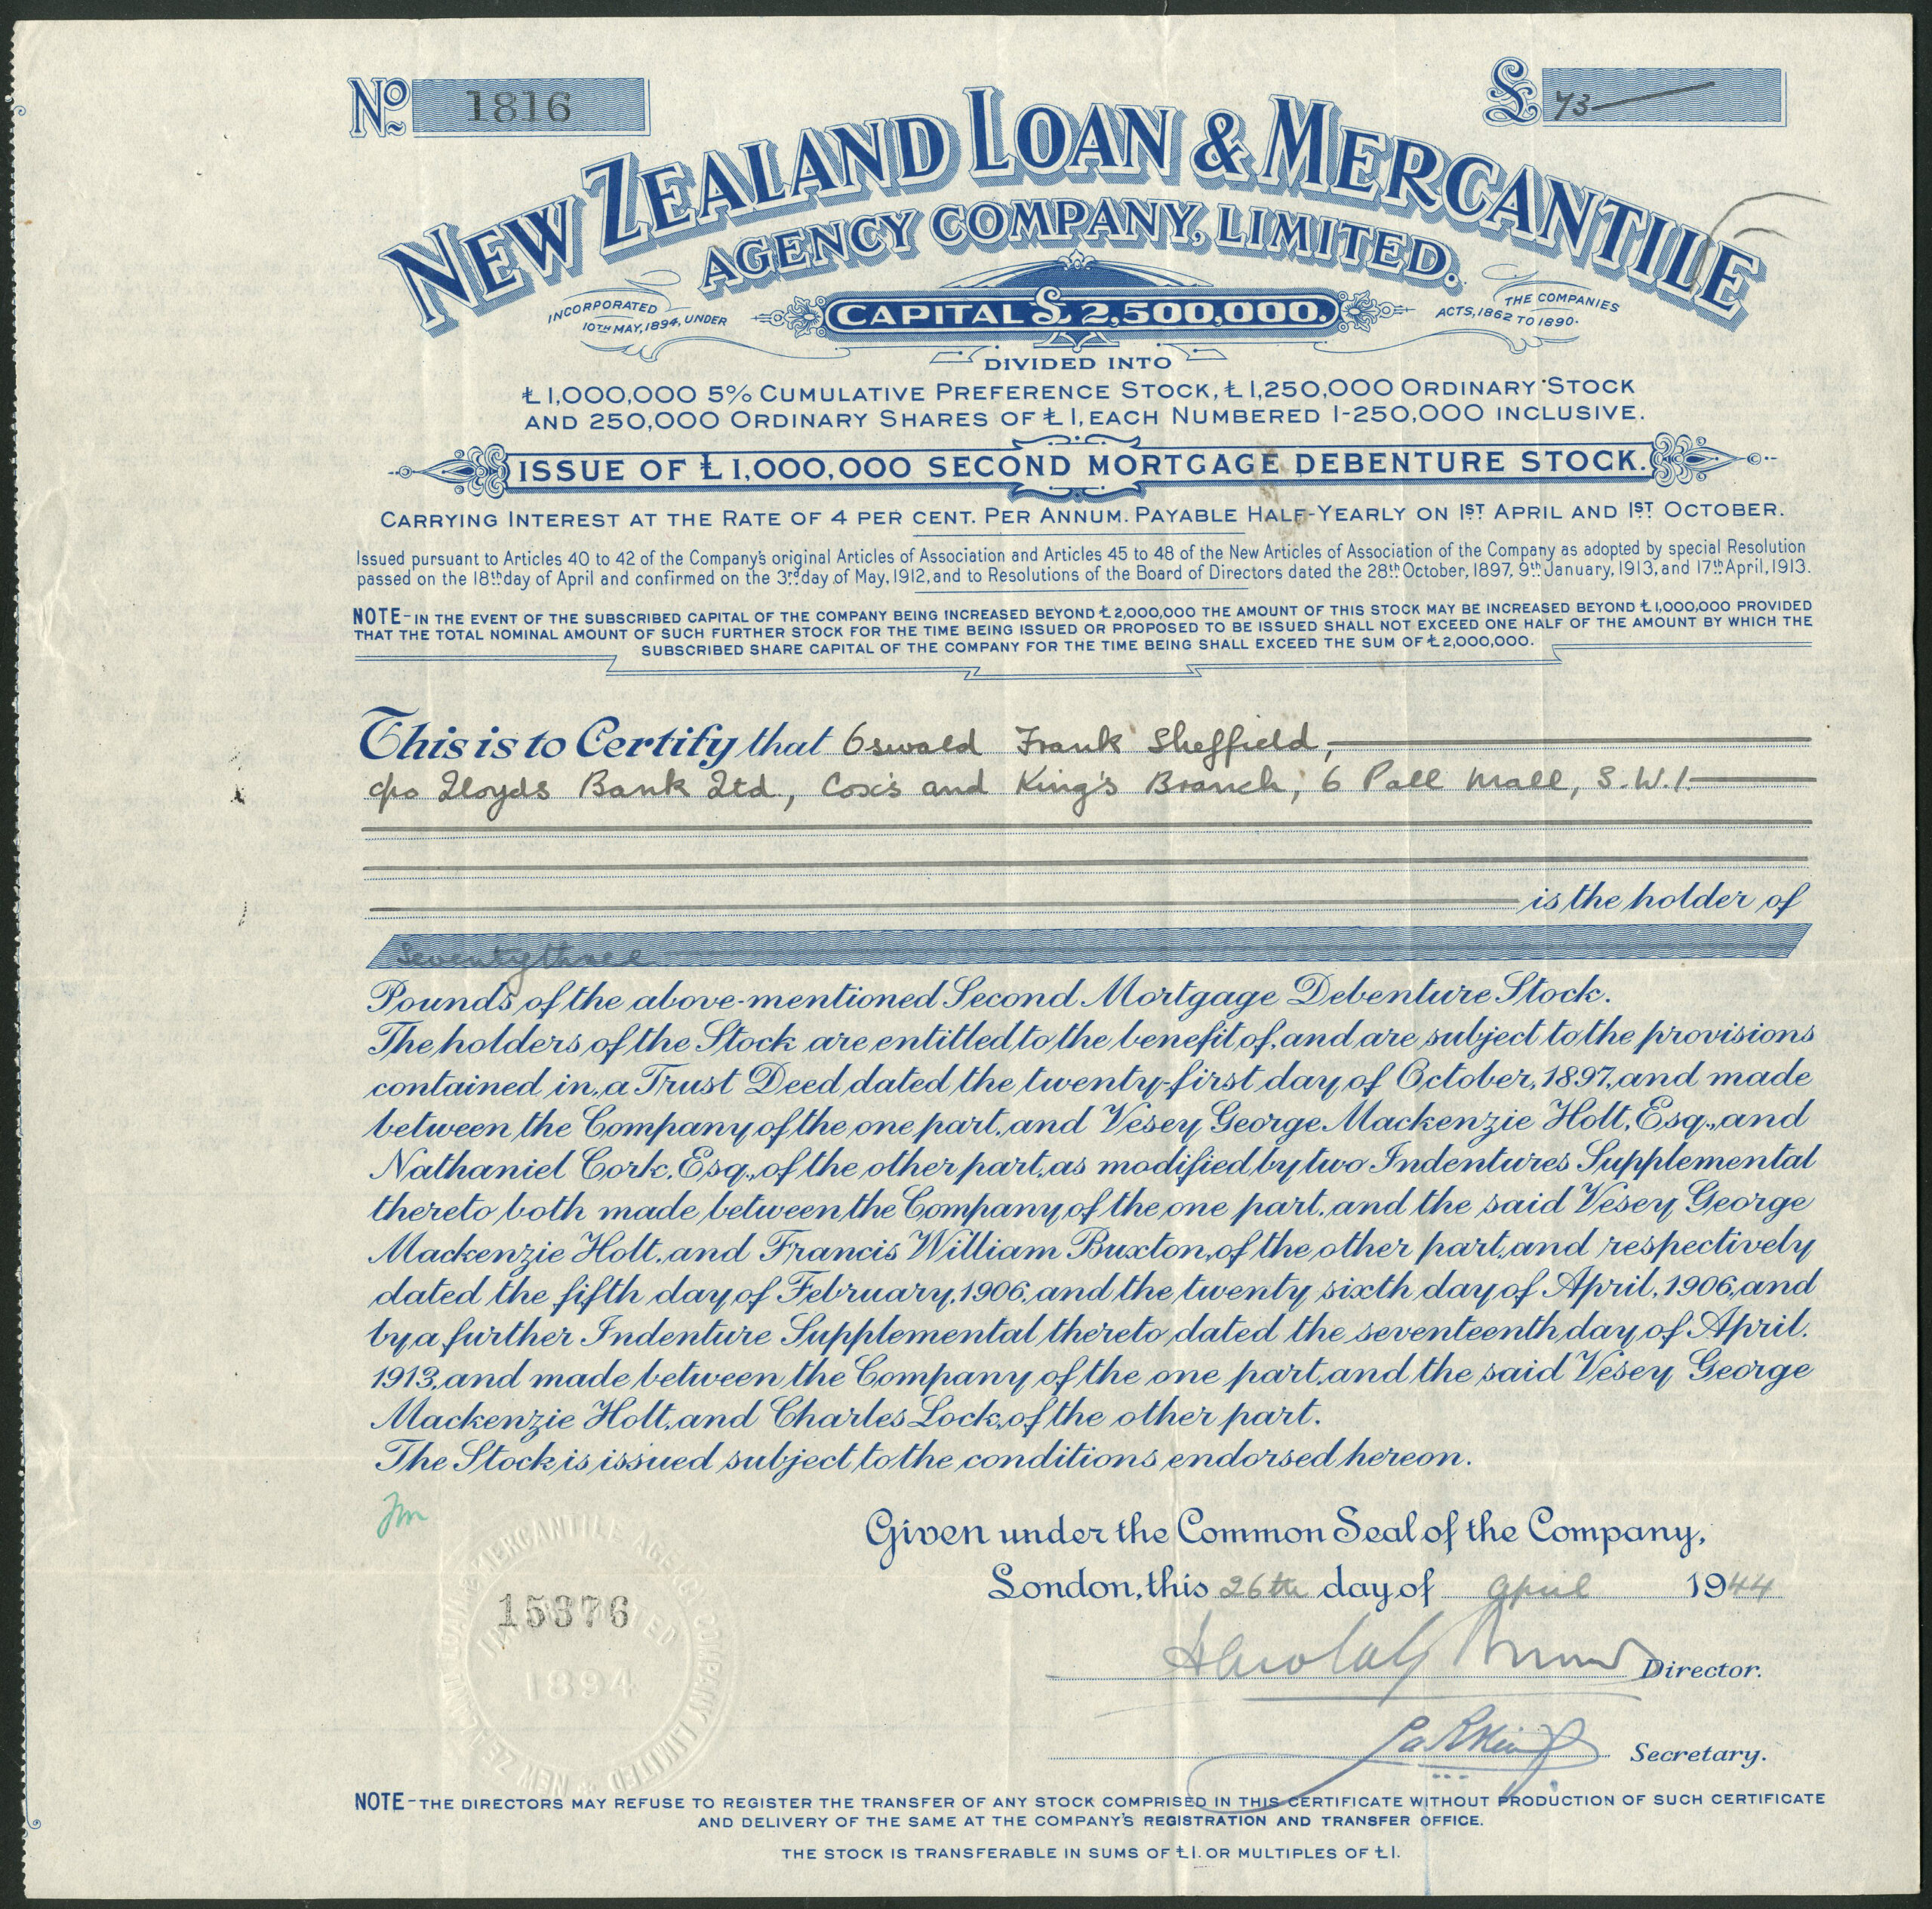 No 1816
£ 73
NEW ZEALAND LOAN & MERCANTILE
AGENCY COMPANY, LIMITED.
INCORPORATED
10TH MAY, 1894, UNDER
CAPITAL £ 2,500,000.
THE COMPANIES
ACTS, 1862 TO 1890.
DIVIDED INTO
£1,000,000 5% CUMULATIVE PREFERENCE STOCK, £1,250,000 ORDINARY STOCK
AND 250,000 ORDINARY SHARES OF £1, EACH NUMBERED 1-250,000 INCLUSIVE.
ISSUE OF £1,000,000 SECOND MORTGAGE DEBENTURE STOCK.
CARRYING INTEREST AT THE RATE OF 4 PER CENT. PER ANNUM. PAYABLE HALF-YEARLY ON 1ST APRIL AND 1ST OCTOBER.
Issued pursuant to Articles 40 to 42 of the Company's original Articles of Association and Articles 45 to 48 of the New Articles of Association of the Company as adopted by special Resolution
passed on the 18th day of April and confirmed on the 3rd day of May, 1912, and to Resolutions of the Board of Directors dated the 28th October, 1897, 9th January, 1913, and 17th April, 1913.
NOTE-IN THE EVENT OF THE SUBSCRIBED CAPITAL OF THE COMPANY BEING INCREASED BEYOND £2,000,000 THE AMOUNT OF THIS STOCK MAY BE INCREASED BEYOND £1,000,000 PROVIDED
THAT THE TOTAL NOMINAL AMOUNT OF SUCH FURTHER STOCK FOR THE TIME BEING ISSUED OR PROPOSED TO BE ISSUED SHALL NOT EXCEED ONE HALF OF THE AMOUNT BY WHICH THE
SUBSCRIBED SHARE CAPITAL OF THE COMPANY FOR THE TIME BEING SHALL EXCEED THE SUM OF £2,000,000.
This is to Certify that Oswald Frank Sheffield,
c/o Lloyds Bank Ltd, Cox's and King's Branch, 6 Pall Mall, S.W.1.
is the holder of
Seventythree
Pounds of the above-mentioned Second Mortgage Debenture Stock.
The holders of the Stock are entitled to the benefit of, and are subject to the provisions
contained in, a Trust Deed dated the twenty-first day of October, 1897, and made
between the Company of the one part, and Vesey George Mackenzie Holt, Esq., and
Nathaniel Cork, Esq., of the other part, as modified by two Indentures Supplemental
thereto both made between the Company of the one part, and the said Vesey George
Mackenzie Holt, and Francis William Buxton, of the other part, and respectively
dated the fifth day of February, 1906, and the twenty sixth day of April, 1906, and
by a further Indenture Supplemental thereto dated the seventeenth day of April,
1913, and made between the Company of the one part, and the said Vesey George
Mackenzie Holt, and Charles Lock, of the other part.
The Stock is issued subject to the conditions endorsed hereon.
Given under the Common Seal of the Company,
London, this 26th day of April 1944
NEW ZEALAND LOAN & MERCANTILE AGENCY COMPANY LIMITED
INCORPORATED
15376
1894
Director.
Secretary.
NOTE-THE DIRECTORS MAY REFUSE TO REGISTER THE TRANSFER OF ANY STOCK COMPRISED IN THIS CERTIFICATE WITHOUT PRODUCTION OF SUCH CERTIFICATE
AND DELIVERY OF THE SAME AT THE COMPANY'S REGISTRATION AND TRANSFER OFFICE.
THE STOCK IS TRANSFERABLE IN SUMS OF £1. OR MULTIPLES OF £1.